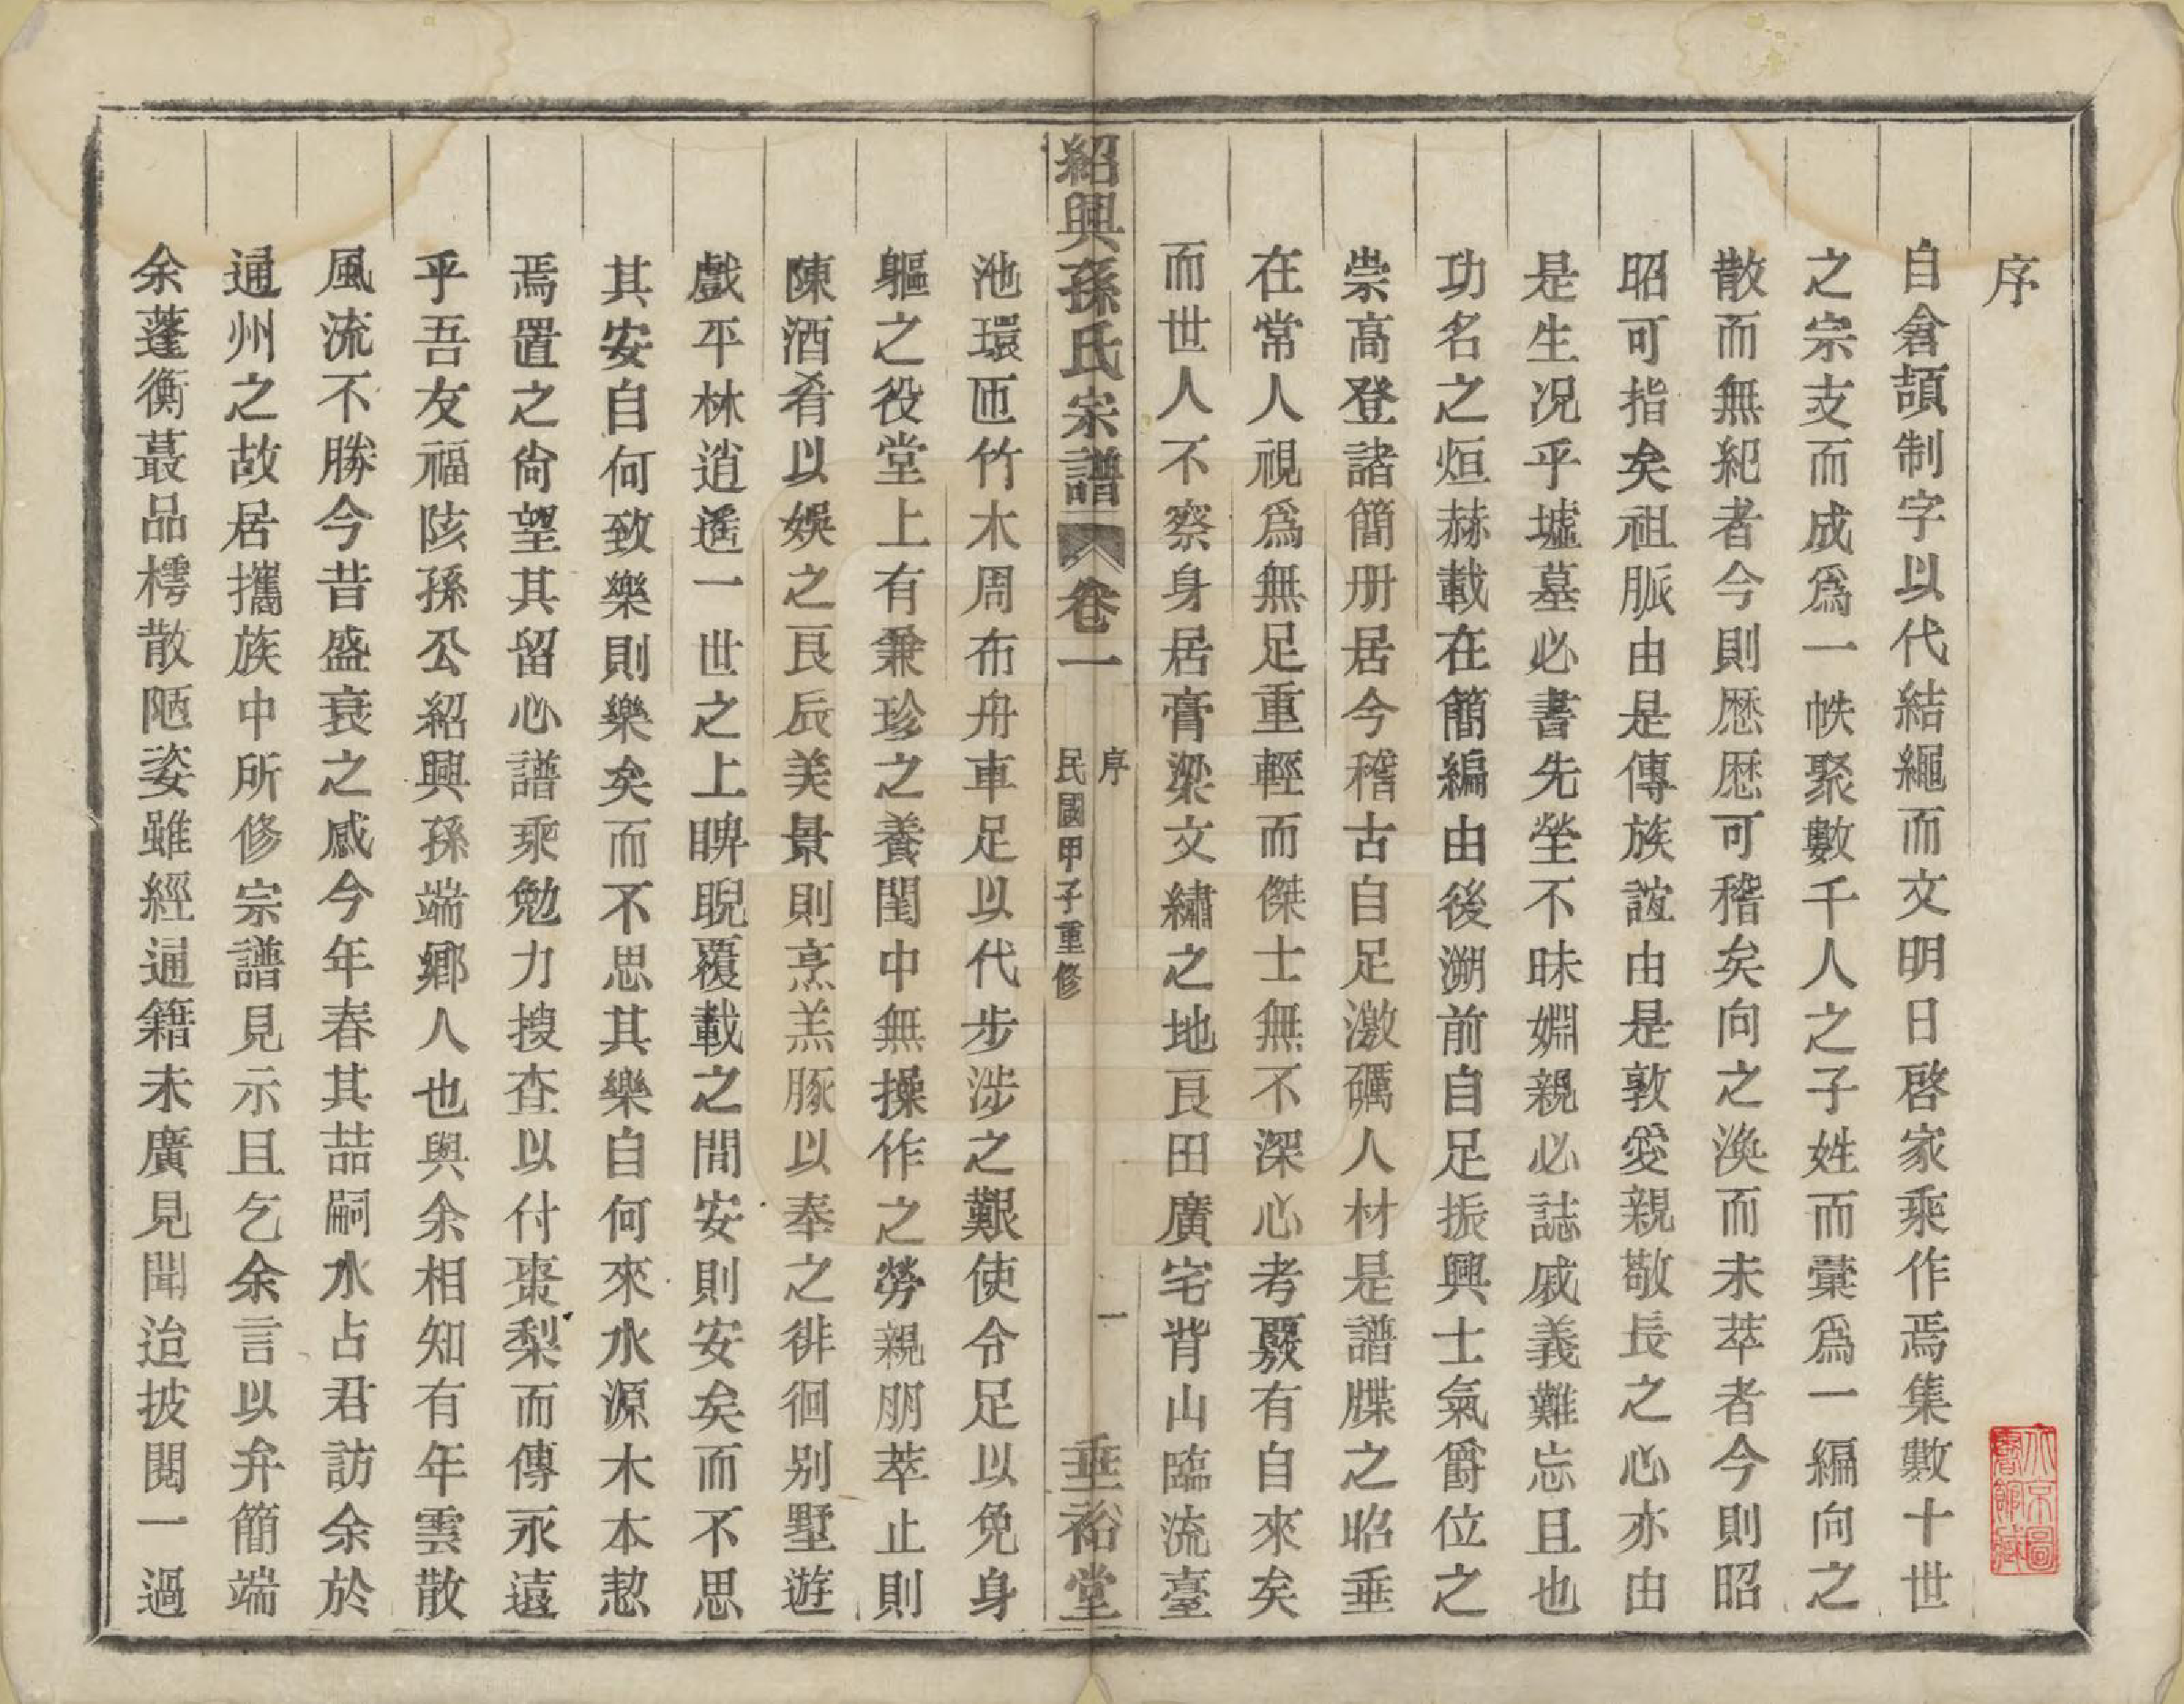 序
自倉頡制字以代結繩而文明日啓家乘作焉集數十世
之宗支而成爲一帙聚數千人之子姓而彙爲一編向之
散而無紀者今則歷歷可稽矣向之渙而未萃者今則昭
昭可指矣祖脈由是傳族誼由是敦愛親敬長之心亦由
是生况乎墟墓必書先塋不昧婣親必誌戚義難忘且也
功名之烜赫載在簡編由後溯前自足振興士氣爵位之
崇高登諸簡册居今稽古自足激礪人材是譜牒之昭垂
在常人視爲無足重輕而傑士無不深心考覈有自來矣
而世人不察身居膏粱文繡之地良田廣宅背山臨流臺
紹興孫氏宗譜 卷一 序 民國甲子重修 一 垂裕堂
池環匝竹木周布舟車足以代步涉之艱使令足以免身
軀之役堂上有兼珍之養閨中無操作之勞親朋萃止則
陳酒肴以娛之良辰美景則烹羔豚以奉之徘徊别墅遊
戲平林逍遙一世之上睥睨覆載之間安則安矣而不思
其安自何致樂則樂矣而不思其樂自何來水源木本愸
焉置之尙望其留心譜乘勉力搜查以付棗梨而傳永遠
乎吾友福陔孫公紹興孫端鄉人也與余相知有年雲散
風流不勝今昔盛衰之感今年春其喆嗣水占君訪余於
通州之故居攜族中所修宗譜見示且乞余言以弁簡端
余蓬衡蕞品樗散陋姿雖經通籍未廣見聞迨披閱一過